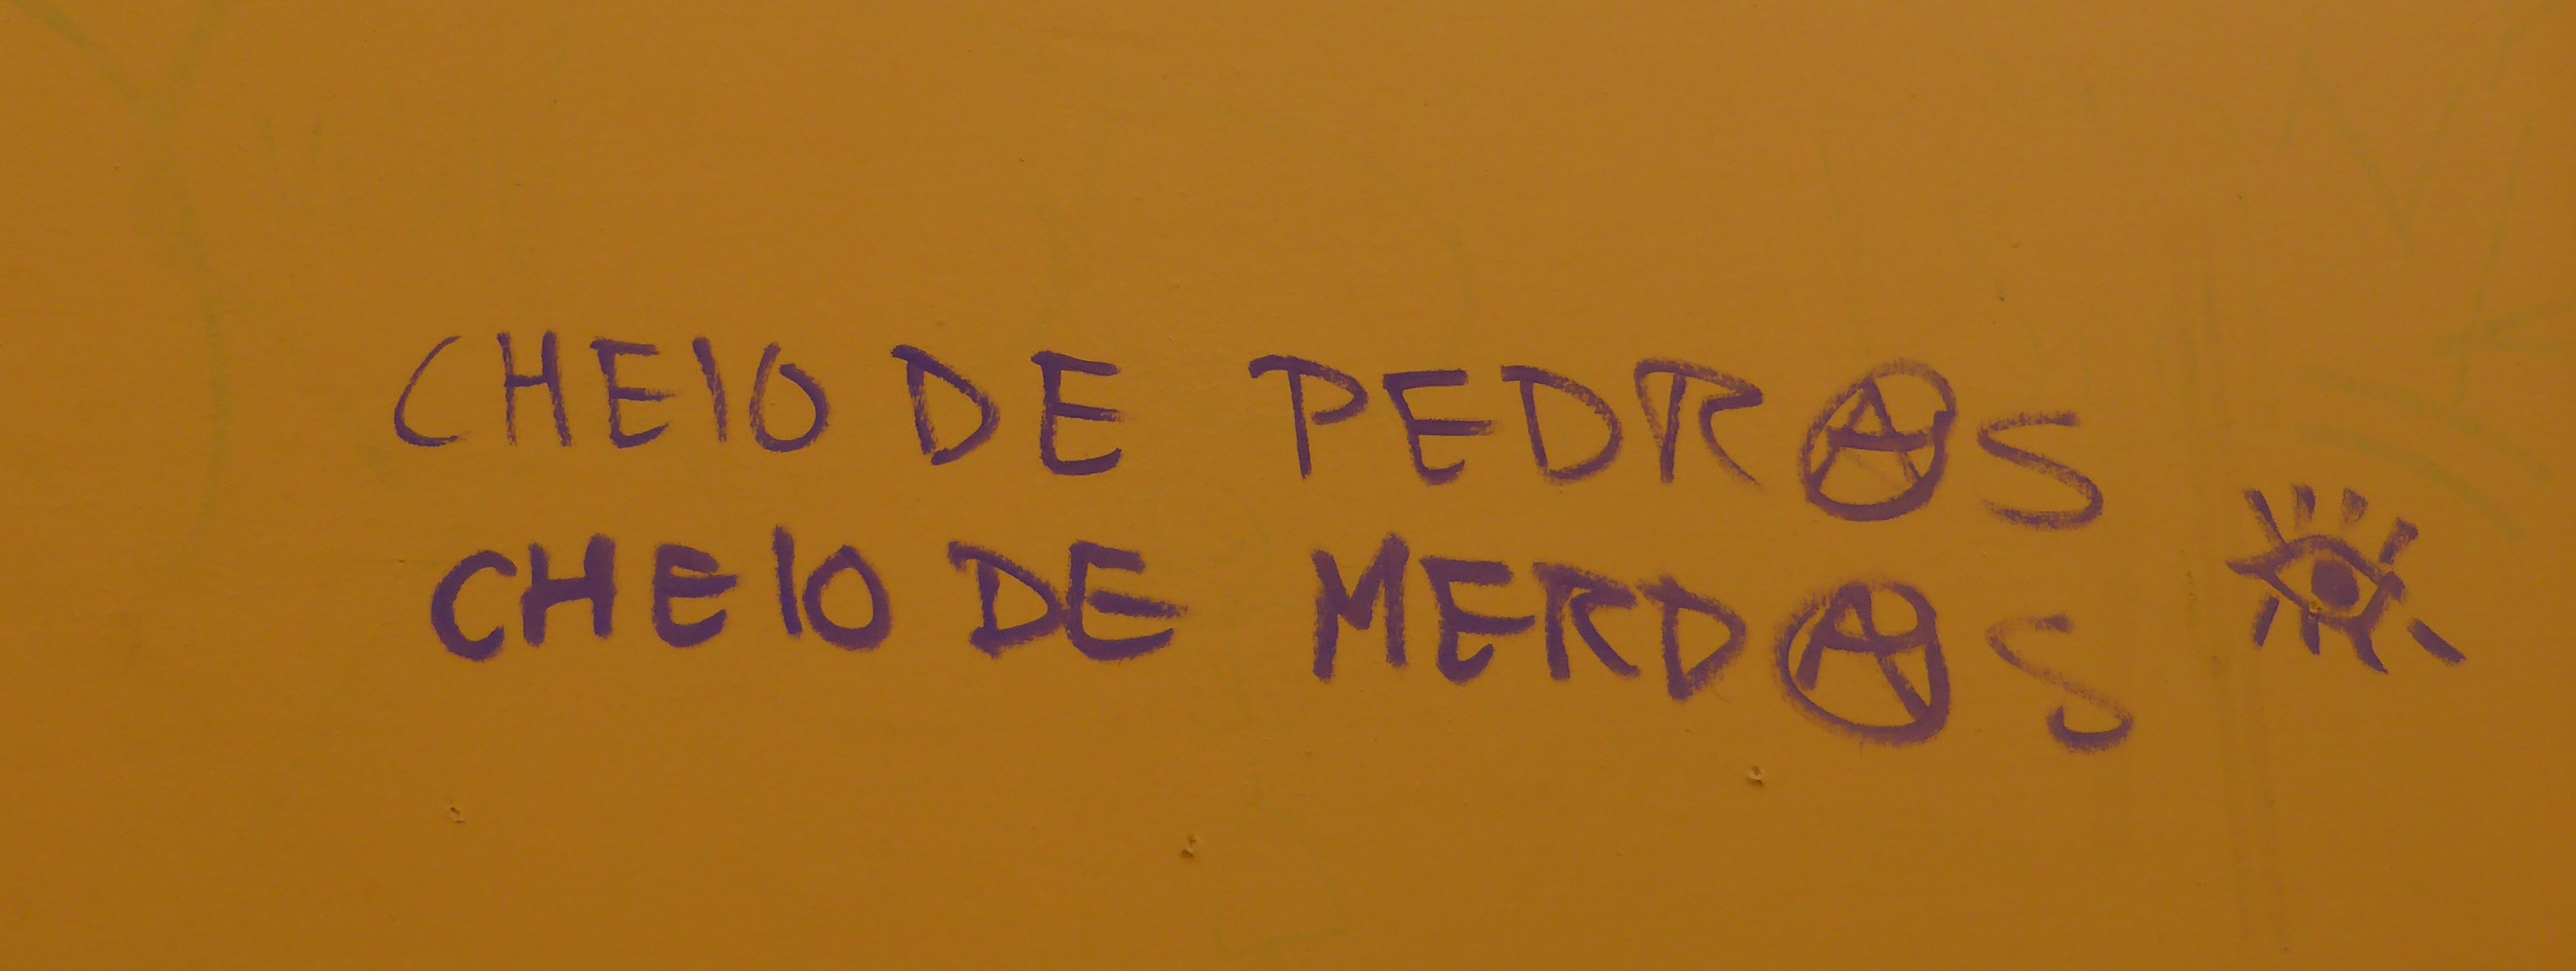 CHEIO DE PEDRⒶS
CHEIO DE MERDⒶS